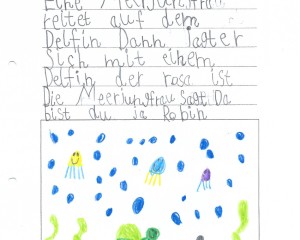 Eine Meerjungfrau
reitet auf dem
Delfin Dann
Sich mit einem
Delfin der rosa ist
Die Meerjungfrau Sagt Da
bist du ja Robin